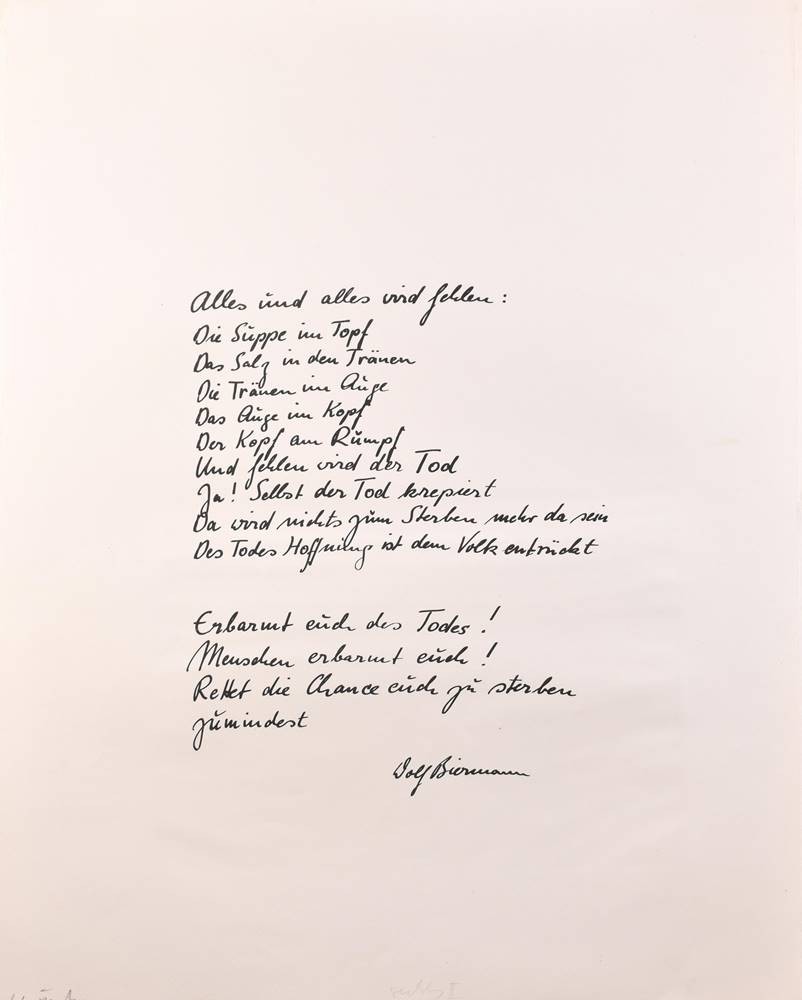 Alles und alles wird fehlen:
Die Suppe im Topf
Das Salz in den Tränen
Die Tränen im Auge
Das Auge im Kopf
Der Kopf am Rumpf
Und fehlen wird der Tod
Ja! Selbst der Tod krepiert
Da wird nichts zum Sterben mehr da sein
Des Todes Hoffnung ist dem Volk entrückt
Erbarmt euch des Todes!
Menschen erbarmt euch!
Rettet die Chance euch zu sterben
zumindest
Wolf Biermann